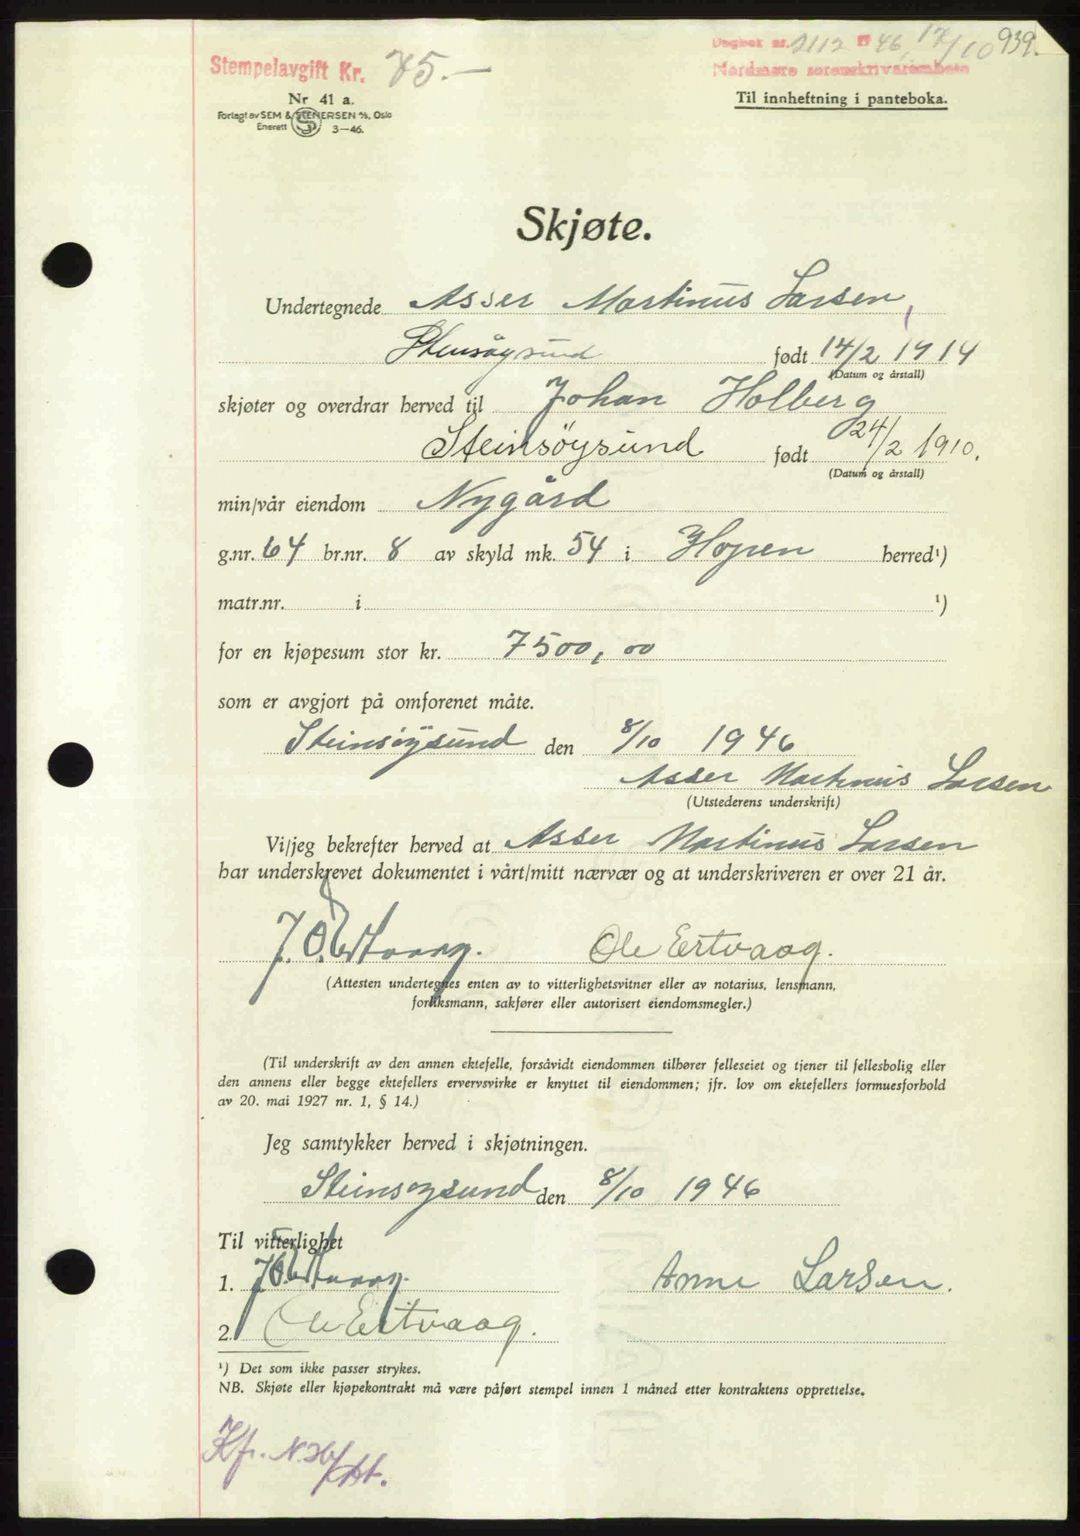 Stempelavgift Kr. 75.—
Dagbok nr. 2112 19 46, 17/10 939.
Nordmøre sorenskriverembete
Nr 41 a.
Forlagt av SEM & STENERSEN A/S, Oslo
Enerett S 3—46.
Til innheftning i panteboka.
Skjøte.
Undertegnede Asser Martinus Larsen,
Steinsøysund født 14/2 1914
(Datum og årstall)
skjøter og overdrar herved til Johan Holberg
Steinsøysund født 24/2 1910.
(Datum og årstall)
min/vår eiendom Nygård
g.nr. 64 br.nr. 8 av skyld mk. 54 i Hopen herred¹)
matr.nr. i ¹)
for en kjøpesum stor kr. 7500,00
som er avgjort på omforenet måte.
Steinsøysund den 8/10 1946
Asser Martinus Larsen
(Utstederens underskrift)
Vi/jeg bekrefter herved at Asser Martinus Larsen
har underskrevet dokumentet i vårt/mitt nærvær og at underskriveren er over 21 år.
Ole Ertvaag.
(Attesten undertegnes enten av to vitterlighetsvitner eller av notarius, lensmann,
forliksmann, sakfører eller autorisert eiendomsmegler.)
(Til underskrift av den annen ektefelle, forsåvidt eiendommen tilhører felleseiet og tjener til fellesbolig eller
den annens eller begge ektefellers ervervsvirke er knyttet til eiendommen; jfr. lov om ektefellers formuesforhold
av 20. mai 1927 nr. 1, § 14.)
Jeg samtykker herved i skjøtningen.
Steinsøysund den 8/10 1946
Til vitterlighet
1. Anne Larsen.
2. Ole Ertvaag.
¹) Det som ikke passer strykes.
NB. Skjøte eller kjøpekontrakt må være påført stempel innen 1 måned etter kontraktens opprettelse.
Kfr.